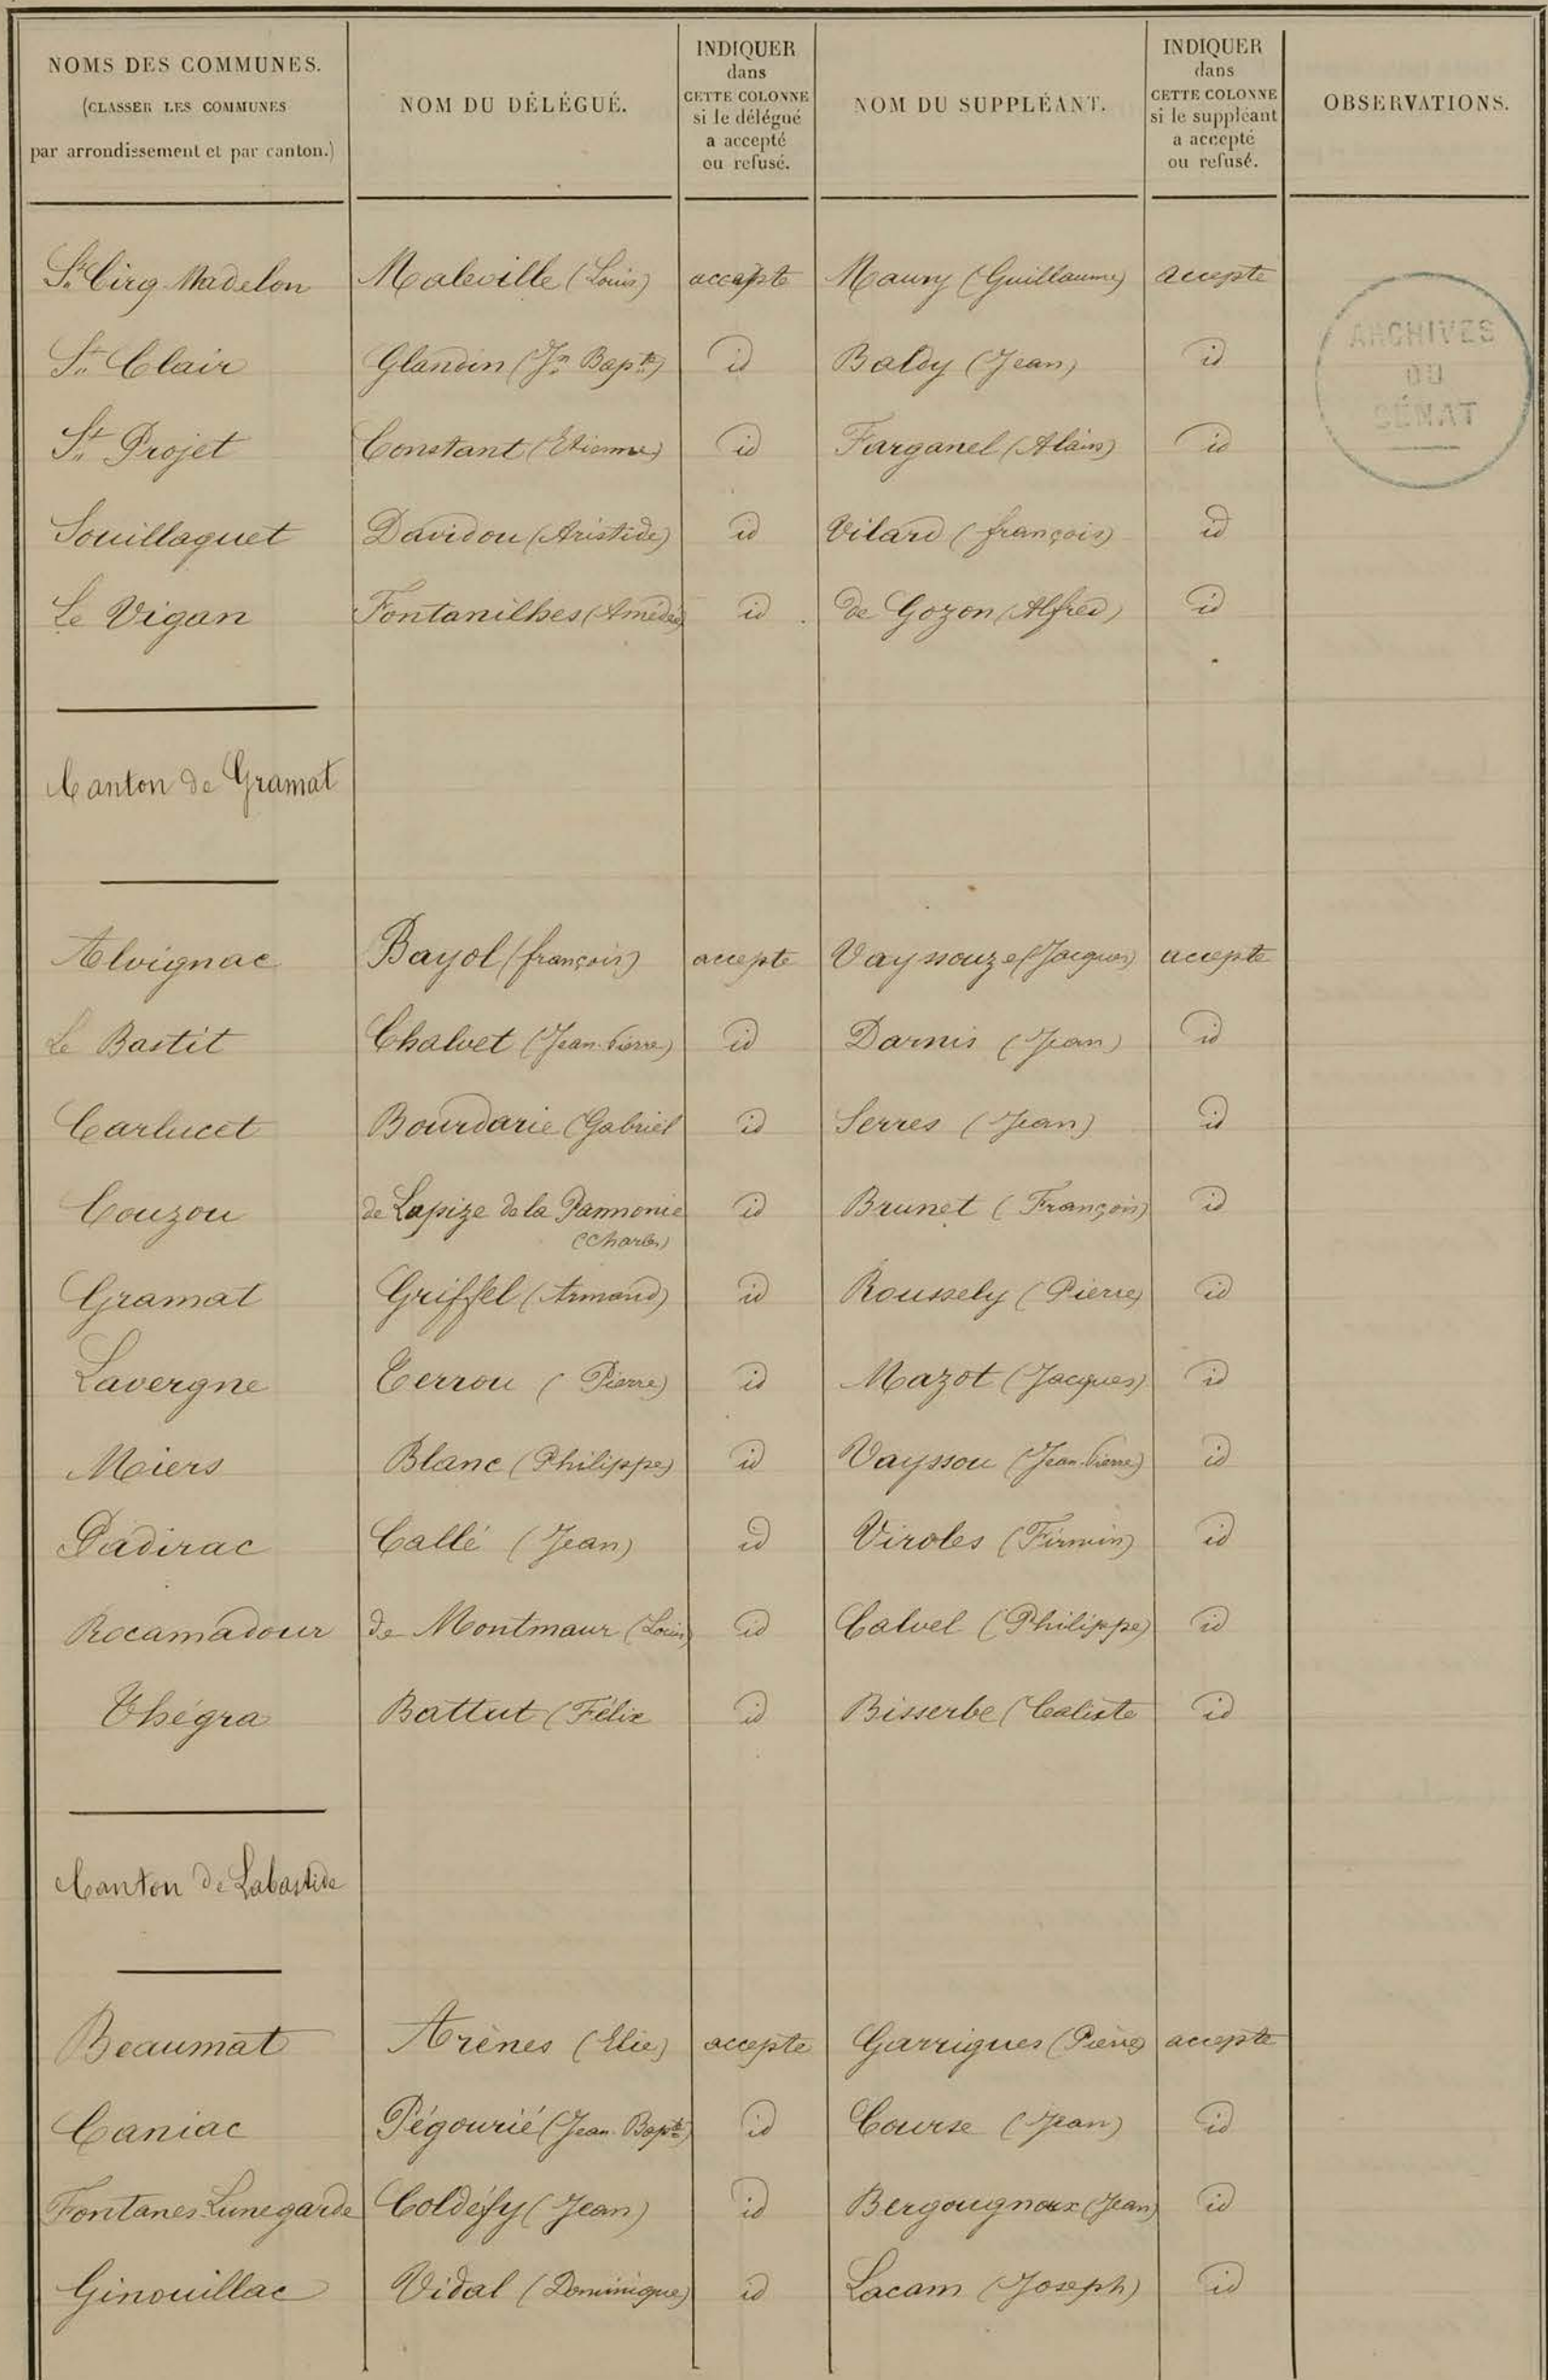 NOMS DES COMMUNES.
(CLASSER LES COMMUNES
par arrondissement et par canton.)
NOM DU DÉLÉGUÉ.
INDIQUER
dans
CETTE COLONNE
si le délégué
a accepté
ou refusé.
NOM DU SUPPLÉANT.
INDIQUER
dans
CETTE COLONNE
si le suppléant
a accepté
ou refusé.
OBSERVATIONS.
ARCHIVES
DU
SÉNAT
St Cirq Madelon Maleville (Louis) accepte Maury (Guillaume) accepte
St Clair Glandin (Jn Bapte) id Baldy (Jean) id
St Projet Constant (Etienne) id Farganel (Alain) id
Souillaguet Davidou (Aristide) id Vilard (françois) id
Le Vigan Fontanilhes (Amédée) id de Gozon (Alfred) id
Canton de Gramat
Alvignac Bayol (françois) accepte Vayssouze (Jacques) accepte
Le Bastit Chalvet (Jean-Pierre) id Darnis (Jean) id
Carlucet Bourdarie (Gabriel id Serres (Jean) id
Couzou de Lapize de la Pannonie id Brunet (François) id
(Charles)
Gramat Griffel (Armand) id Roussely (Pierre) id
Lavergne Terrou (Pierre) id Mazot (Jacques) id
Miers Blanc (Philippe) id Vayssou (Jean-Pierre) id
Padirac Callé (Jean) id Viroles (Firmin) id
Rocamadour de Montmaur (Louis) id Calvel (Philippe) id
Thégra Battut (Félix id Bisserbe (Caliste id
Canton de Labastide
Beaumat Arènes (Elie) accepte Garrigues (Pierre) accepte
Caniac Pégourié (Jean-Bapte) id Course (Jean) id
Fontanes-Lunegarde Coldéfy (Jean) id Bergougnoux (Jean) id
Ginouillac Vidal (Dominique) id Lacam (Joseph) id